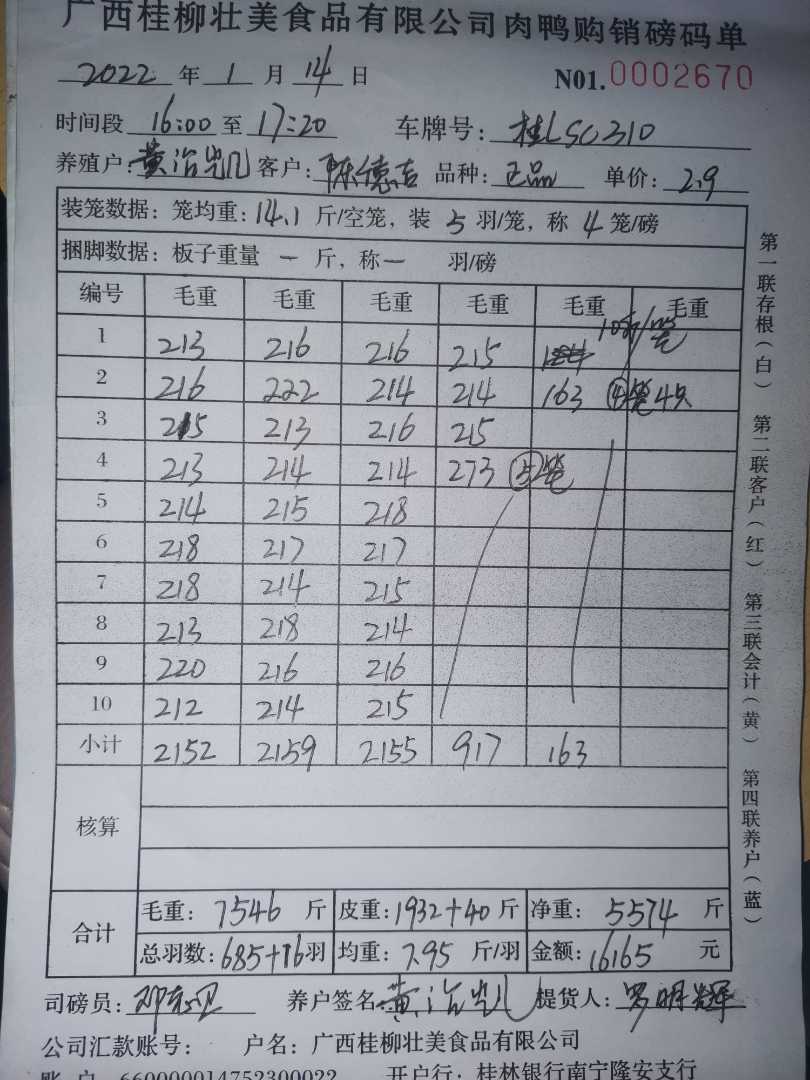 广西桂柳壮美食品有限公司肉鸭购销磅码单
2022 年 1 月 14 日 N01.0002670
时间段 16:00 至 17:20 车牌号: 桂LSC310
养殖户: 黄治凯 客户: 陈德吉 品种: 正品 单价: 2.9
装笼数据: 笼均重: 14.1 斤/空笼, 装 5 羽/笼, 称 4 笼/磅
捆脚数据: 板子重量 一 斤, 称一 羽/磅
编号 毛重 毛重 毛重 毛重 毛重 毛重
1 213 216 216 215 10斤/笼
2 216 222 214 214 163 ④笼4只
3 215 213 216 215
4 213 214 214 273 ⑤笼
5 214 215 218
6 218 217 217
7 218 214 215
8 213 218 214
9 220 216 216
10 212 214 215
小计 2152 2159 2155 917 163
核算
合计 毛重: 7546 斤 皮重: 1932+40 斤 净重: 5574 斤
总羽数: 685+16羽 均重: 7.95 斤/羽 金额: 16165 元
司磅员: 养户签名 黄治凯 提货人: 罗明辉
公司汇款账号: 户名: 广西桂柳壮美食品有限公司
账 户 660000014752300022 开户行: 桂林银行南宁隆安支行
第一联存根(白) 第二联客户(红) 第三联会计(黄) 第四联养户(蓝)